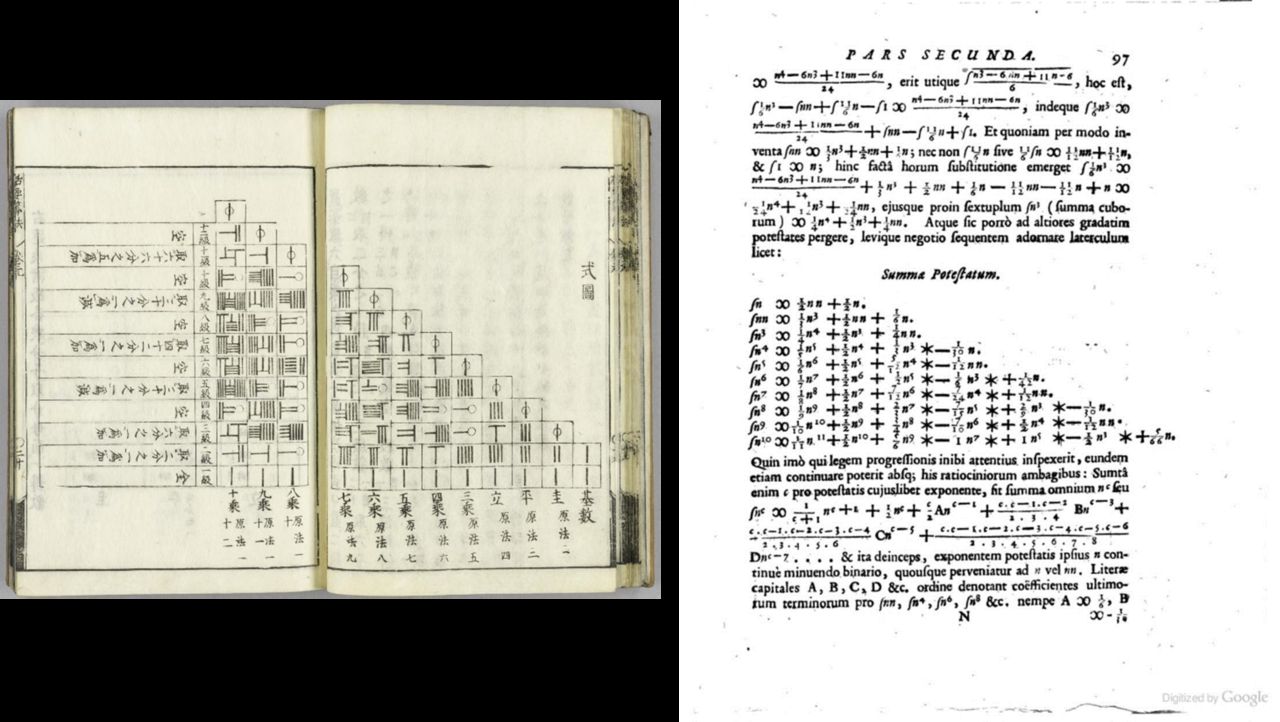 式圖
基數
圭 原法二
平 原法三
立 原法四
三乘 原法五
四乘 原法六
五乘 原法七
六乘 原法八
七乘 原法九
八乘 原法一十
九乘 原法一十一
十乘 原法一十二
一級 全
三級 取六分之一爲加
四級 空
五級 取三十分之一爲減
六級 空
七級 取四十二分之一爲加
八級 空
九級 取三十分之一爲減
十級 空
十一級 取六十六分之五爲加
十二級 空
PARS SECUNDA. 97
∞ (n4 — 6n3 + 11nn — 6n)/24, erit utique ſ (n3 — 6nn + 11n - 6)/6, hoc eſt,
ſ⅙n³ — ſnn + ſ11/6 n — ſ1 ∞ (n4 — 6n3 + 11nn — 6n)/24, indeque ſ⅙n³ ∞
(n4 — 6n3 + 11nn — 6n)/24 + ſnn — ſ11/6 n + ſ1. Et quoniam per modo in-
venta ſnn ∞ ⅓n³ + ½nn + ⅙n; nec non ſ11/6 n ſive 11/6 ſn ∞ 11/12 nn + 11/12 n,
& ſ1 ∞ n; hinc factâ horum ſubſtitutione emerget ſ⅙n³ ∞
(n4 — 6n3 + 11nn — 6n)/24 + ⅓n³ + ½nn + ⅙n — 11/12 nn — 11/12 n + n ∞
1/24 n⁴ + 1/12 n³ + 1/24 nn, ejusque proin ſextuplum ſn³ (ſumma cubo-
rum) ∞ ¼n⁴ + ½n³ + ¼nn. Atque ſic porrò ad altiores gradatim
poteſtates pergere, levique negotio ſequentem adornare laterculum
licet:
Summæ Poteſtatum.
ſn ∞ ½nn + ½n.
ſnn ∞ ⅓n³ + ½nn + ⅙n.
ſn³ ∞ ¼n⁴ + ½n³ + ¼nn.
ſn⁴ ∞ ⅕n⁵ + ½n⁴ + ⅓n³ * — 1/30 n.
ſn⁵ ∞ ⅙n⁶ + ½n⁵ + 5/12 n⁴ * — 1/12 nn.
ſn⁶ ∞ 1/7 n⁷ + ½n⁶ + ½n⁵ * — ⅙n³ * + 1/42 n.
ſn⁷ ∞ ⅛n⁸ + ½n⁷ + 7/12 n⁶ * — 7/24 n⁴ * + 1/12 nn.
ſn⁸ ∞ 1/9 n⁹ + ½n⁸ + ⅔n⁷ * — 7/15 n⁵ * + 2/9 n³ * — 1/30 n.
ſn⁹ ∞ 1/10 n¹⁰ + ½n⁹ + ¾n⁸ * — 7/10 n⁶ * + ½n⁴ * — 1/12 nn.
ſn¹⁰ ∞ 1/11 n¹¹ + ½n¹⁰ + ⅚n⁹ * — 1n⁷ * + 1n⁵ * — ½n³ * + 5/66 n.
Quin imò qui legem progreſſionis inibi attentius inſpexerit, eundem
etiam continuare poterit absq; his ratiociniorum ambagibus: Sumtâ
enim c pro poteſtatis cujuslibet exponente, fit ſumma omnium nᶜ ſeu
ſnᶜ ∞ 1/(c+1) nᶜ⁺¹ + ½nᶜ + c/2 Anᶜ⁻¹ + (c. c—1. c—2)/(2. 3. 4) Bnᶜ⁻³ +
(c. c—1. c—2. c—3. c—4)/(2. 3. 4. 5. 6) Cnᶜ⁻⁵ + (c. c—1. c—2. c—3. c—4. c—5. c—6)/(2. 3. 4. 5. 6. 7. 8)
Dnᶜ⁻⁷ . . . . & ita deinceps, exponentem poteſtatis ipſius n con-
tinuè minuendo binario, quouſque perveniatur ad n vel nn. Literæ
capitales A, B, C, D &c. ordine denotant coëfficientes ultimo-
rum terminorum pro ſnn, ſn⁴, ſn⁶, ſn⁸ &c. nempe A ∞ ⅙, B
N ∞ - 1/30
Digitized by Google